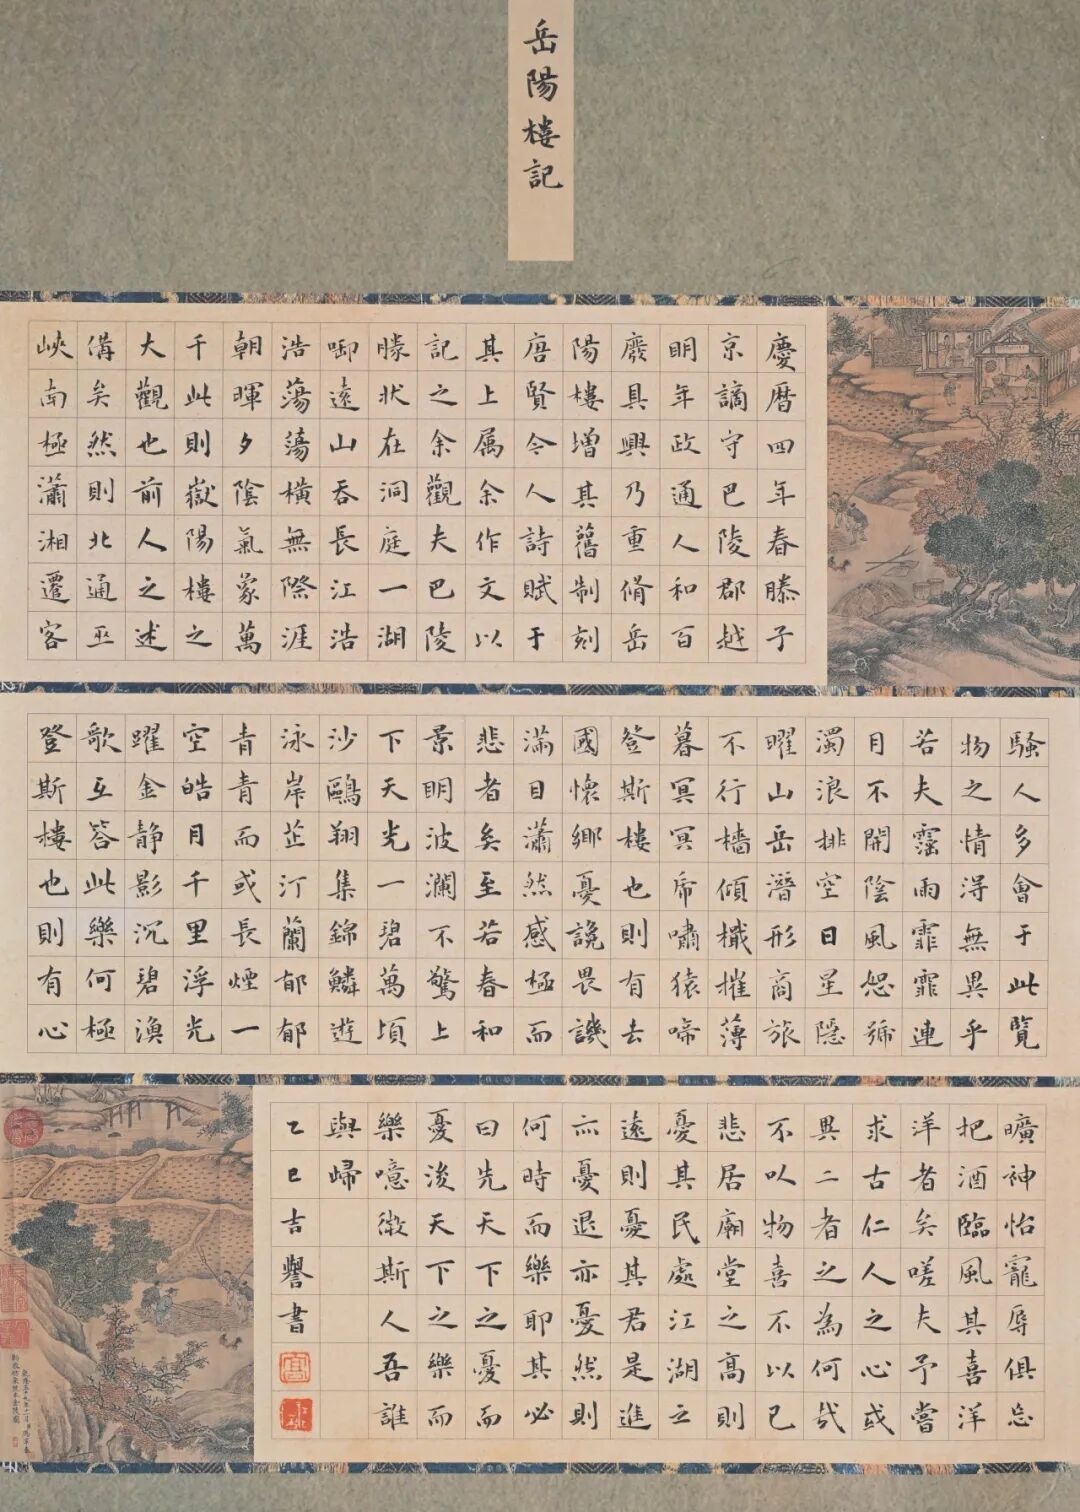 岳陽樓記
慶曆四年春滕子
京謫守巴陵郡越
明年政通人和百
廢具興乃重脩岳
陽樓增其舊制刻
唐賢今人詩賦于
其上属余作文以
記之余觀夫巴陵
勝狀在洞庭一湖
啣遠山吞長江浩
浩蕩蕩橫無際涯
朝暉夕陰氣象萬
千此則嶽陽樓之
大觀也前人之述
備矣然則北通巫
峽南極瀟湘遷客
騷人多會于此覽
物之情淂無異乎
若夫霪雨霏霏連
月不開陰風怒號
濁浪排空日星隱
曜山岳潛形商旅
不行檣傾檝摧薄
暮冥冥虎嘯猿啼
登斯樓也則有去
國懷鄉憂讒畏譏
滿目瀟然感極而
悲者矣至若春和
景明波瀾不驚上
下天光一碧萬頃
沙鷗翔集錦鱗遊
泳岸芷汀蘭郁郁
青青而或長煙一
空皓月千里浮光
躍金静影沉碧漁
歌互答此樂何極
登斯樓也則有心
曠神怡寵辱俱忘
把酒臨風其喜洋
洋者矣嗟夫予嘗
求古仁人之心或
異二者之為何哉
不以物喜不以己
悲居廟堂之高則
憂其民處江湖之
遠則憂其君是進
亦憂退亦憂然則
何時而樂耶其必
曰先天下之憂而
憂後天下之樂而
樂噫微斯人吾誰
與歸
乙巳吉譽書